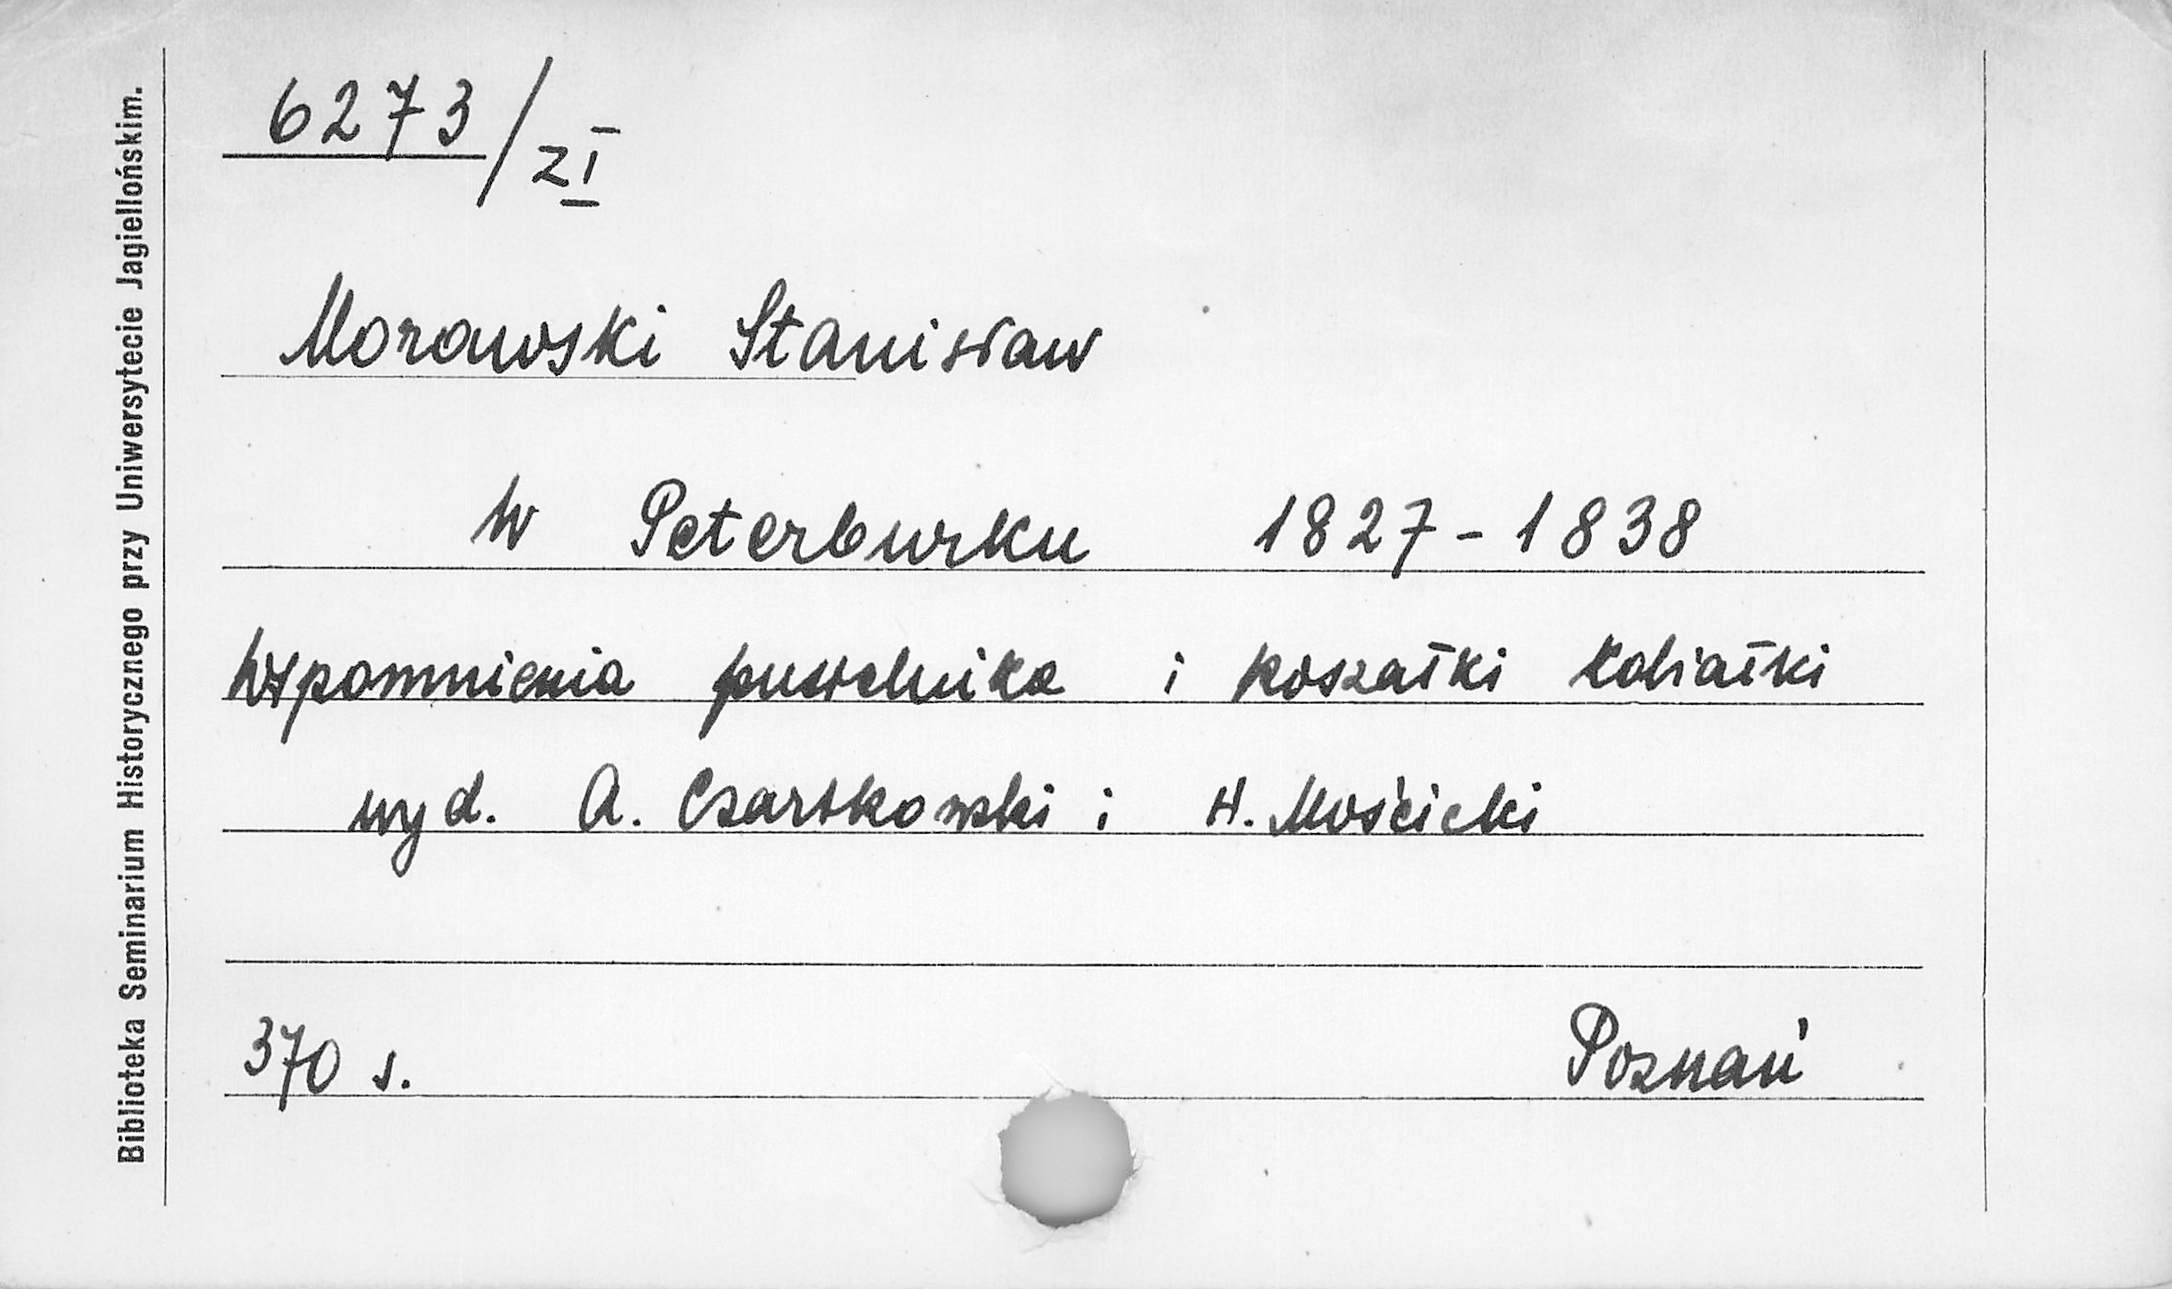 Biblioteka Seminarium Historycznego przy Uniwersytecie Jagiellońskim.
6273/zI
Morawski Stanisław
W Peterburku 1827-1838
Wspomnienia pustelnika i koszałki kobiałki
wyd. A. Czartkowski i H. Mościcki
370 s. Poznań